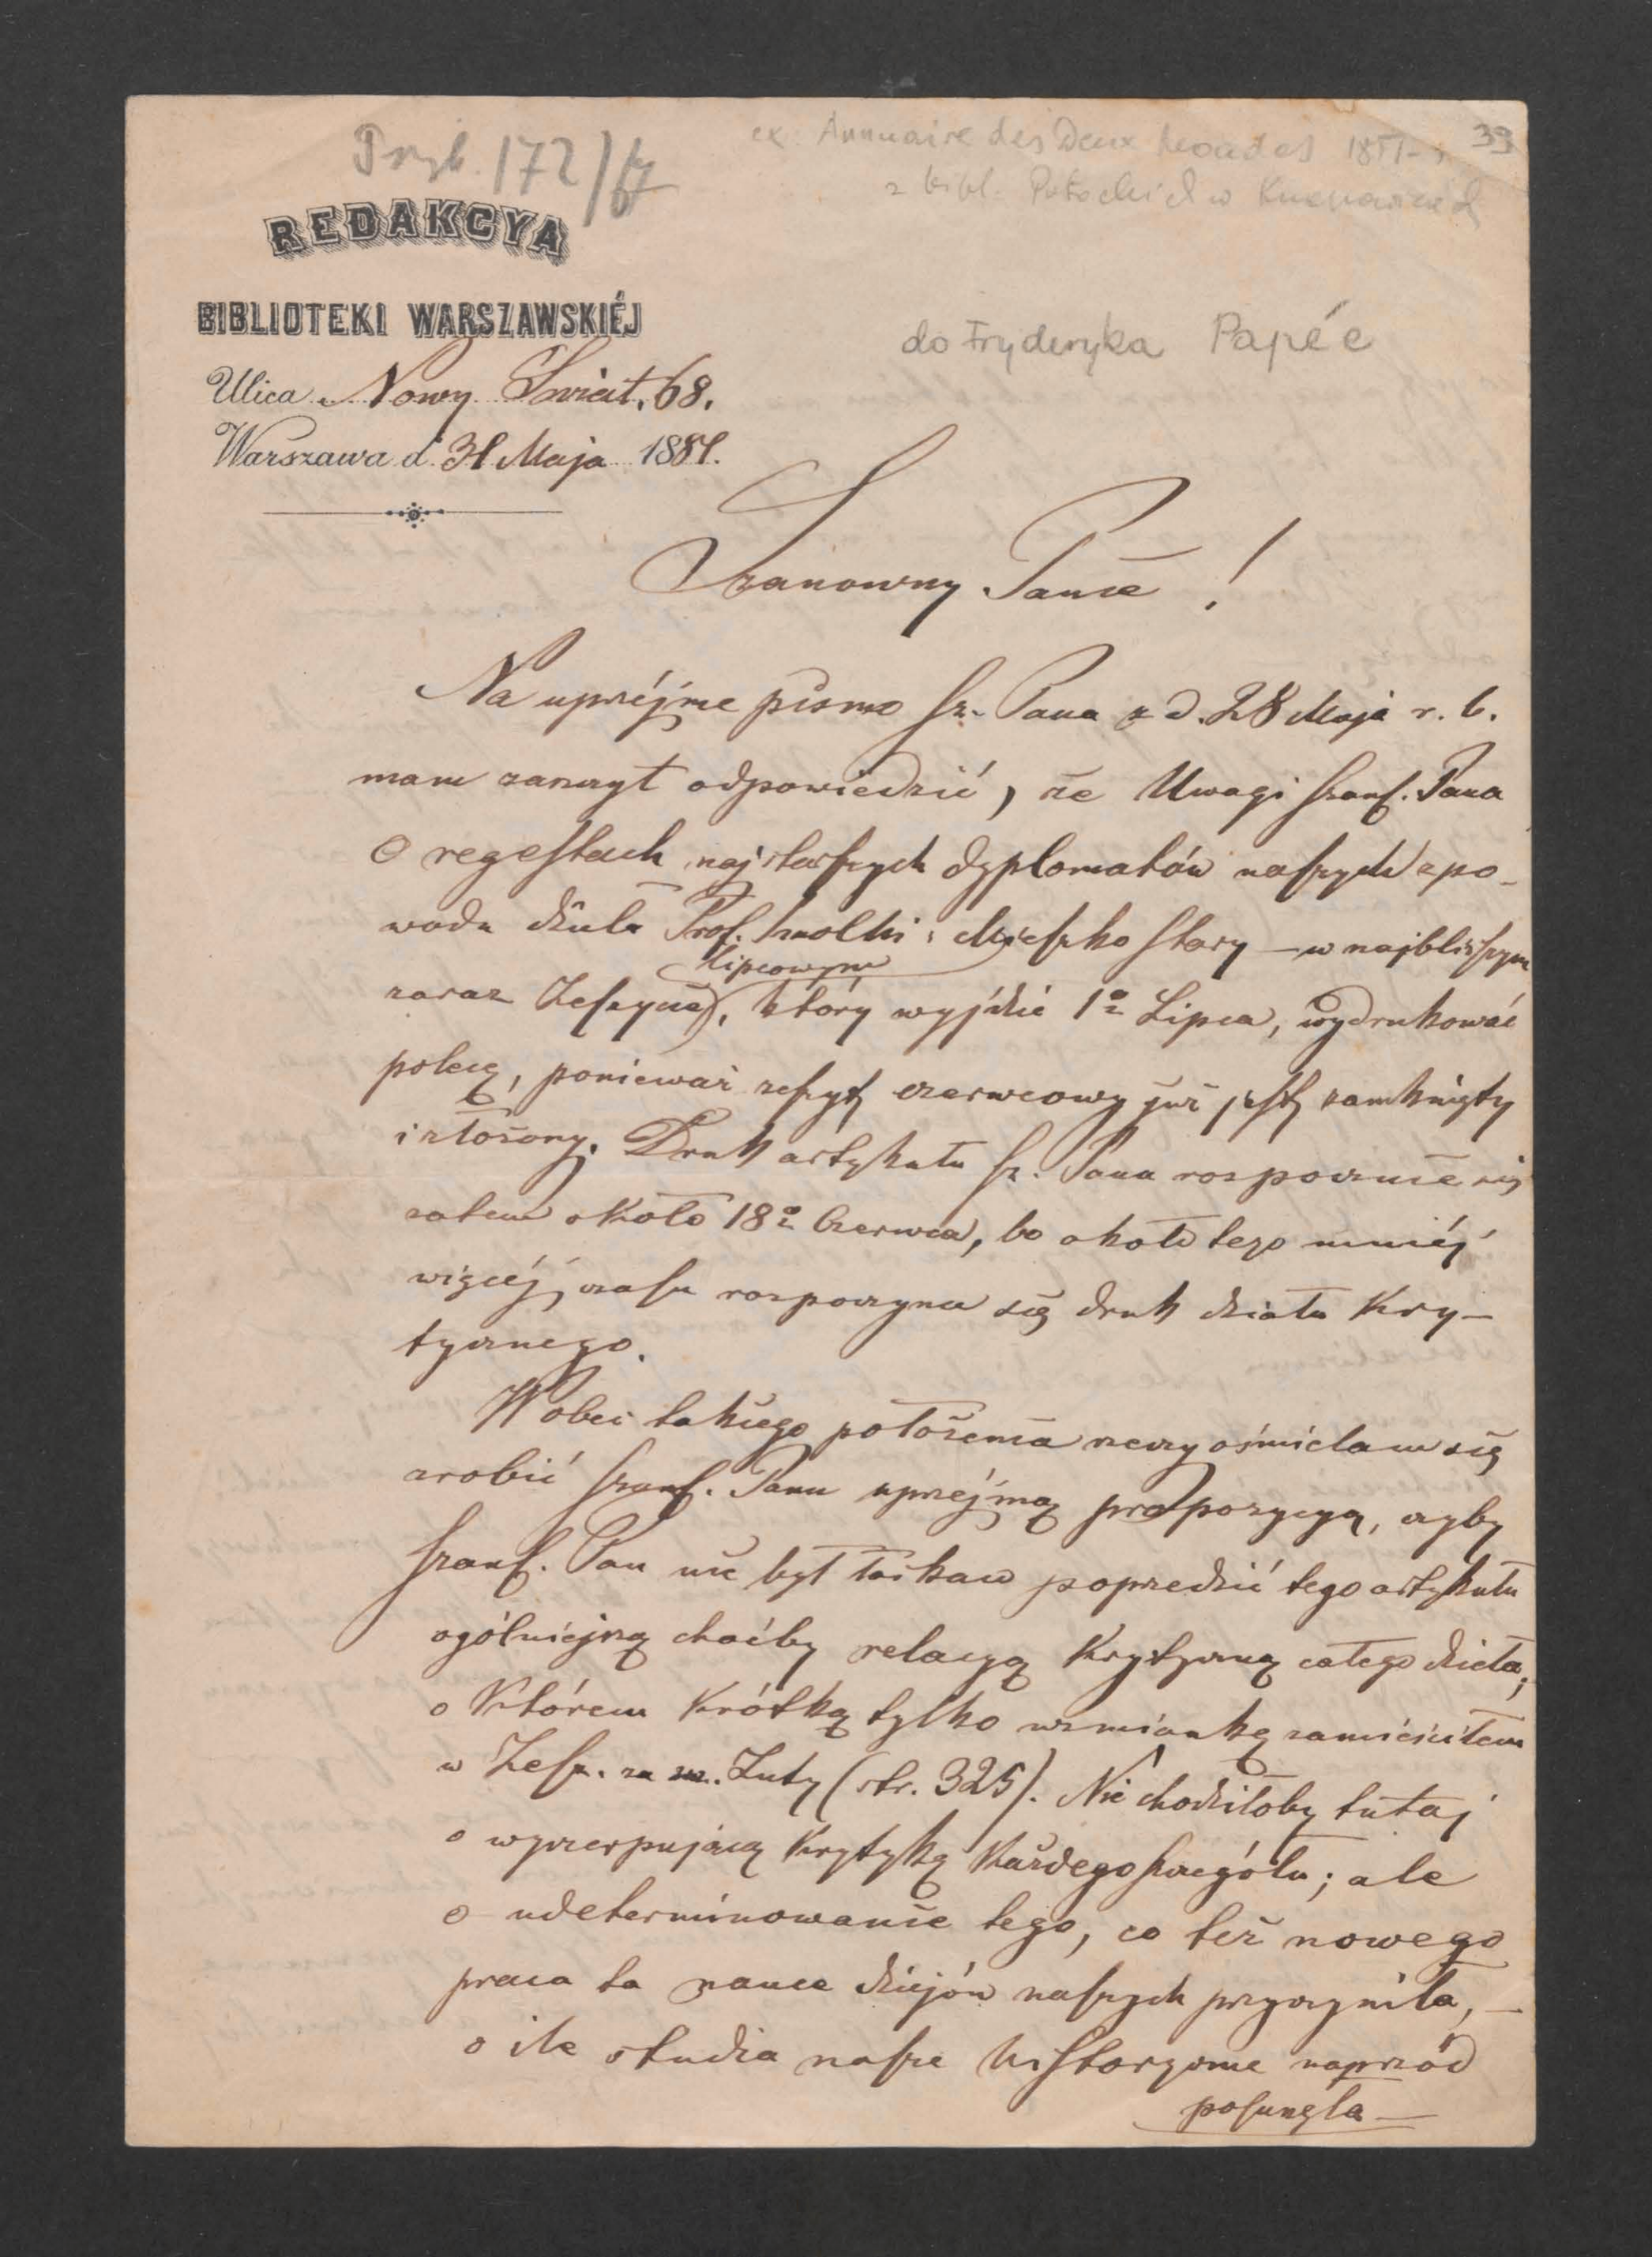 Przyb. 172/67
ex: Annuaire des Deux Mondes
39
z bibl. Potockich w
REDAKCYA
BIBLIOTEKI WARSZAWSKIÉJ
do Fryderyka Papée
Ulica Nowy Świat. 68.
Warszawa d. 31 Maja 1881.
Szanowny Panie!
Na uprzéjme pismo Sz. Pana z d. 28 Maja r. b.
mam zaszczyt odpowiedzić, że Uwagi Szan. Pana
O regestach najstarszych dyplomatów naszych z po-
wodu dzieła Prof. Smolki: Mieszko Stary – w najbliższym
lipcowym
zaraz Zeszycie, który wyjdzie 1o Lipca, wydrukować
polecę, ponieważ zeszyt czerwcowy już jest zamknięty
i złożony. Druk artykułu Sz. Pana rozpocznie się
zatem około 18o Czerwca, bo około tego mniéj
więcéj czasu rozpoczyna się druk działu Kry-
tycznego.
Wobec takiego położenia rzeczy ośmielam się
zrobić Szan. Panu uprzejmą propozycyą, czyby
Szan. Pan nie był łaskaw poprzedzić tego artykułu
ogólniejszą choćby relacyą Krytyczną całego dzieła,
o Którem Krótką tylko wzmiankę zamieściłem
w Zesz. za m. Luty (str. 325). Nie chodziłoby tutaj
o wyczerpującą Krytykę Każdego szczegółu; ale
o udeterminowanie tego, co też nowego
praca ta nauce dziejów naszych przyczyniła, –
o ile studia nasze historyczne naprzód
posunęła –